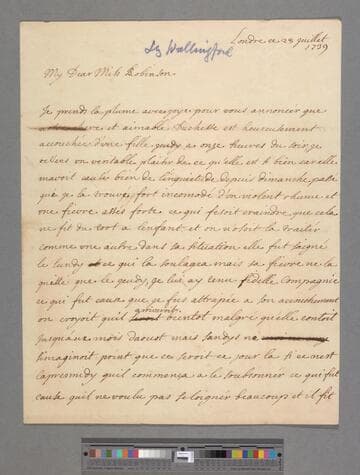 Ly Wallingford
Londre ce 28 Juillet
1739
My Dear Miss Robinson.
Je prend la plume avec joye pour vous annoncer que
chere et aimable Duchesse est heureusement
accouchée d'une fille jeudy a onze heures du soir, je
veritable plaisir de ce qu'elle est si bien car elle
m'avoit bien de l'inquietude depuis dimanche passé
que je la trouvé fort incomodé d'un violent rhume et
une fievre assés forte ce qui fesoit craindre que cela
ne fit du tort a l'enfant et on n'osoit la traiter
comme une autre dans sa situation elle fut saigné
le lundy ce qui la soulagea mais sa fievre ne la
quitté que le jeudy, je luy ay tenu fidelle compagnie
ce qui fut cause que je fus attrapée a son accouchement
on croyoit qu'il seroit bientot malgré qu'elle contoit
jusqu'au mois d'aoust mais Sandys ne
s'imaginoit point que ce seroit ce jour la si ce n'est
l'apresmidy qu'il commença a le soubsonner ce qui fut
cause qu'il ne voulu pas s'eloigner beaucoup et il fit